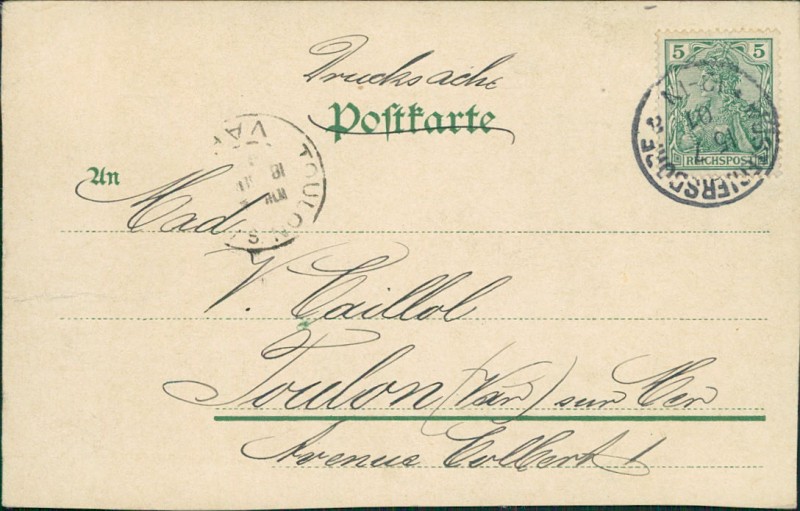 Drucksache
Postkarte
5 5
REICHSPOST
TOULON S.
VAR
An
Mad.
V. Caillol
Toulon (Var) sur Mer
Avenue Colbert 1